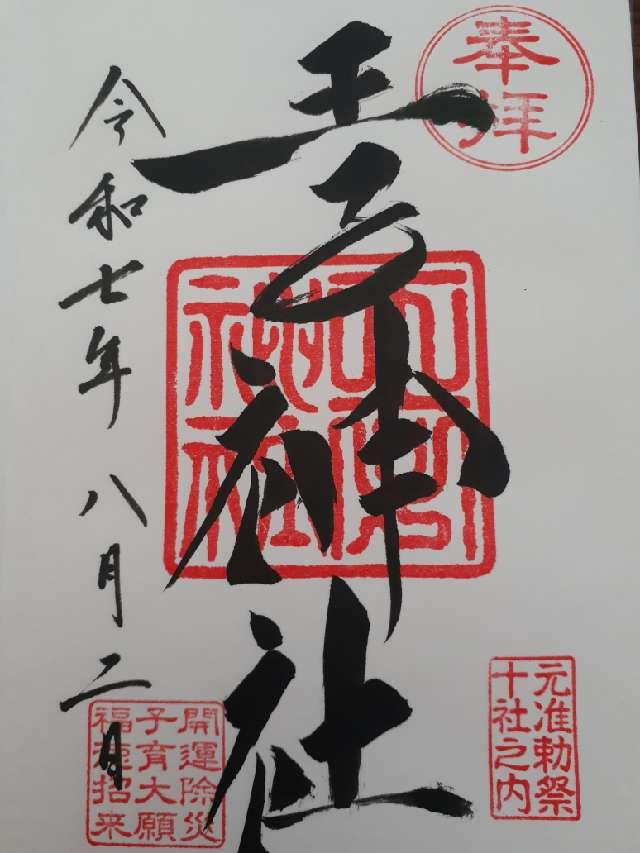 奉拝
王子神社
元准勅祭
十社之内
開運除災
子育大願
福徳招来
令和七年八月二日